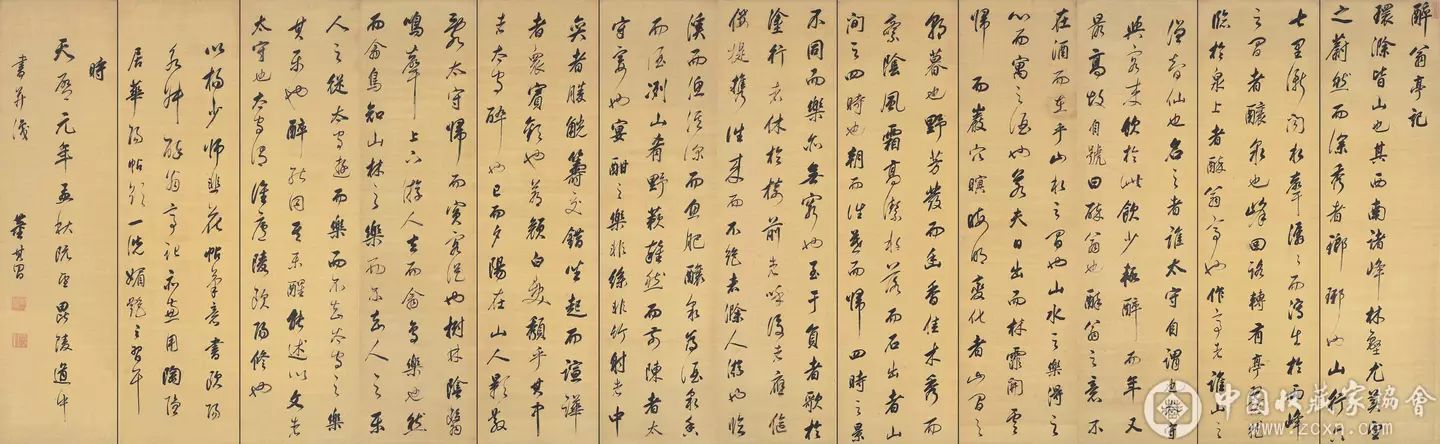 醉翁亭記
環滁皆山也其西南諸峰林壑尤美望
之蔚然而深秀者瑯琊也山行六
七里漸聞水聲潺潺而瀉出於兩峰
之間者釀泉也峰回路轉有亭翼然
臨於泉上者醉翁亭也作亭者誰山之
僧智仙也名之者誰太守自謂也太守
與客來飲於此飲少輒醉而年又
最高故自號曰醉翁也醉翁之意不
在酒而在乎山水之間也山水之樂得之
心而寓之酒也若夫日出而林霏開雲
歸而巖穴暝晦明變化者山間之
朝暮也野芳發而幽香佳木秀而
繁陰風霜高潔水落而石出者山
間之四時也朝而往暮而歸四時之景
不同而樂亦無窮也至于負者歌於
塗行者休於樹前者呼後者應傴
僂提攜往來而不絕者滁人遊也臨
溪而漁溪深而魚肥釀泉為酒泉香
而酒洌山肴野蔌雜然而前陳者太
守宴也宴酣之樂非絲非竹射者中
奕者勝觥籌交錯坐起而諠譁
者眾賓歡也蒼顏白髮頹乎其中
者太守醉也已而夕陽在山人影散
亂太守歸而賓客從也樹林陰翳
鳴聲上下游人去而禽鳥樂也然
而禽鳥知山林之樂而不知人之樂
人之從太守遊而樂而不知太守之樂
其樂也醉能同其樂醒能述以文者
太守也太守謂誰廬陵歐陽修也
以楊少師韭花帖筆意書歐陽
永叔醉翁亭記亦兼用陶隱
居華陽帖欲一洗媚艷之習耳
時
天啟元年孟秋既望毘陵道中
書并識
董其昌
中国收藏家協會
www.zcxn.com